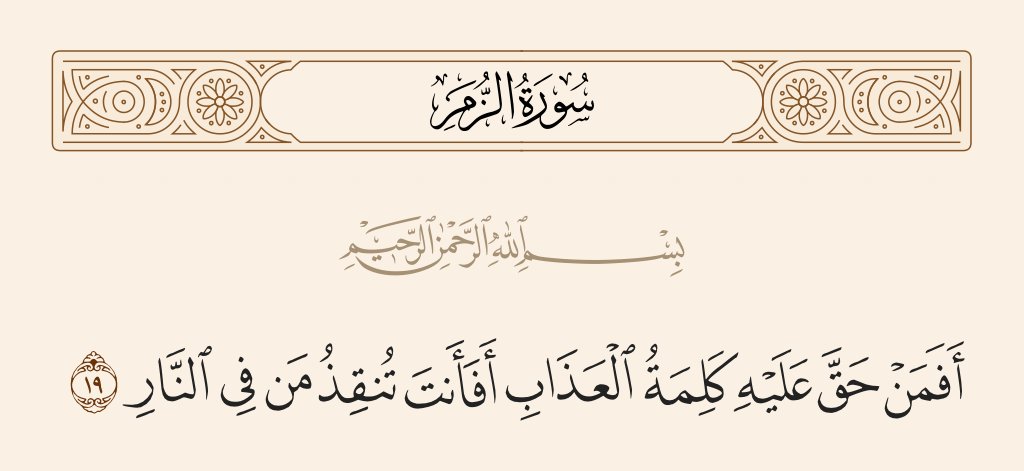 سُورَةُ الزُّمَرِ
بِسْمِ ٱللَّهِ ٱلرَّحْمَٰنِ ٱلرَّحِيمِ
أَفَمَنْ حَقَّ عَلَيْهِ كَلِمَةُ ٱلْعَذَابِ أَفَأَنتَ تُنقِذُ مَن فِى ٱلنَّارِ ١٩